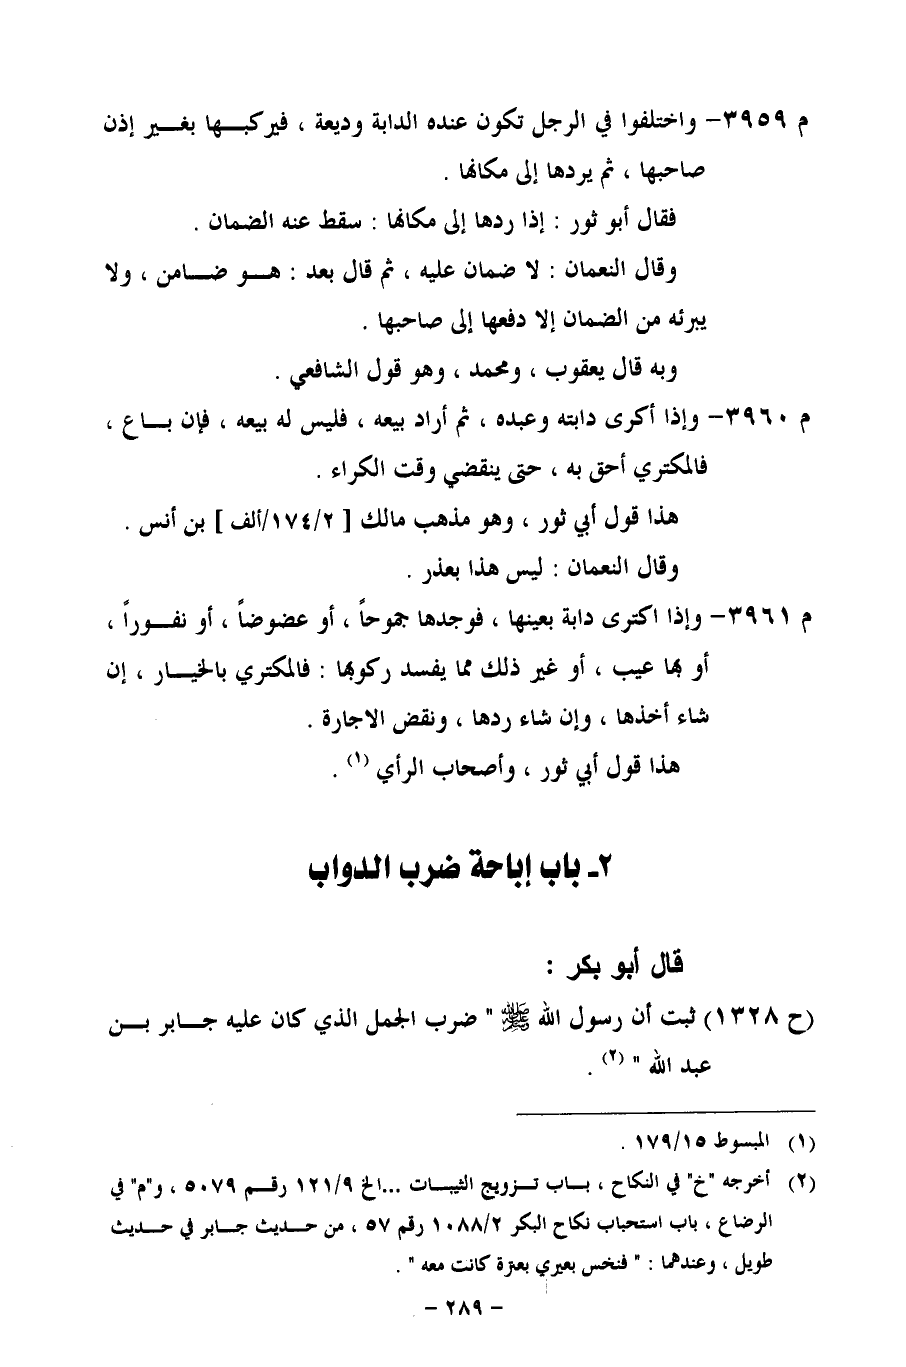 م ٣٩٥٩- واختلفوا في الرجل تكون عنده الدابة وديعة ، فيركبها بغير إذن
صاحبها ، ثم يردها إلى مكانها .
فقال أبو ثور : إذا ردها إلى مكانها : سقط عنه الضمان .
وقال النعمان : لا ضمان عليه ، ثم قال بعد : هو ضامن ، ولا
يبرئه من الضمان إلا دفعها إلى صاحبها .
وبه قال يعقوب ، ومحمد ، وهو قول الشافعي .
م ٣٩٦٠- وإذا أكرى دابته وعبده ، ثم أراد بيعه ، فليس له بيعه ، فإن باع ،
فالمكتري أحق به ، حتى ينقضي وقت الكراء .
هذا قول أبي ثور ، وهو مذهب مالك [ ١٧٤/٢/ألف ] بن أنس .
وقال النعمان : ليس هذا بعذر .
م ٣٩٦١- وإذا اكترى دابة بعينها ، فوجدها جموحاً ، أو عضوضاً ، أو نفوراً ،
أو بها عيب ، أو غير ذلك مما يفسد ركوبها : فالمكتري بالخيار ، إن
شاء أخذها ، وإن شاء ردها ، ونقض الاجارة .
هذا قول أبي ثور ، وأصحاب الرأي (١) .
٢- باب إباحة ضرب الدواب
قال أبو بكر :
(ح ١٣٢٨) ثبت أن رسول الله ﷺ " ضرب الجمل الذي كان عليه جابر بن
عبد الله " (٢) .
(١) المبسوط ١٧٩/١٥ .
(٢) أخرجه "خ" في النكاح ، باب تزويج الثيبات ...الخ ١٢١/٩ رقم ٥٠٧٩ ، و"م" في
الرضاع ، باب استحباب نكاح البكر ١٠٨٨/٢ رقم ٥٧ ، من حديث جابر في حديث
طويل ، وعندهما : " فنخس بعيري بعنزة كانت معه " .
- ٢٨٩ -